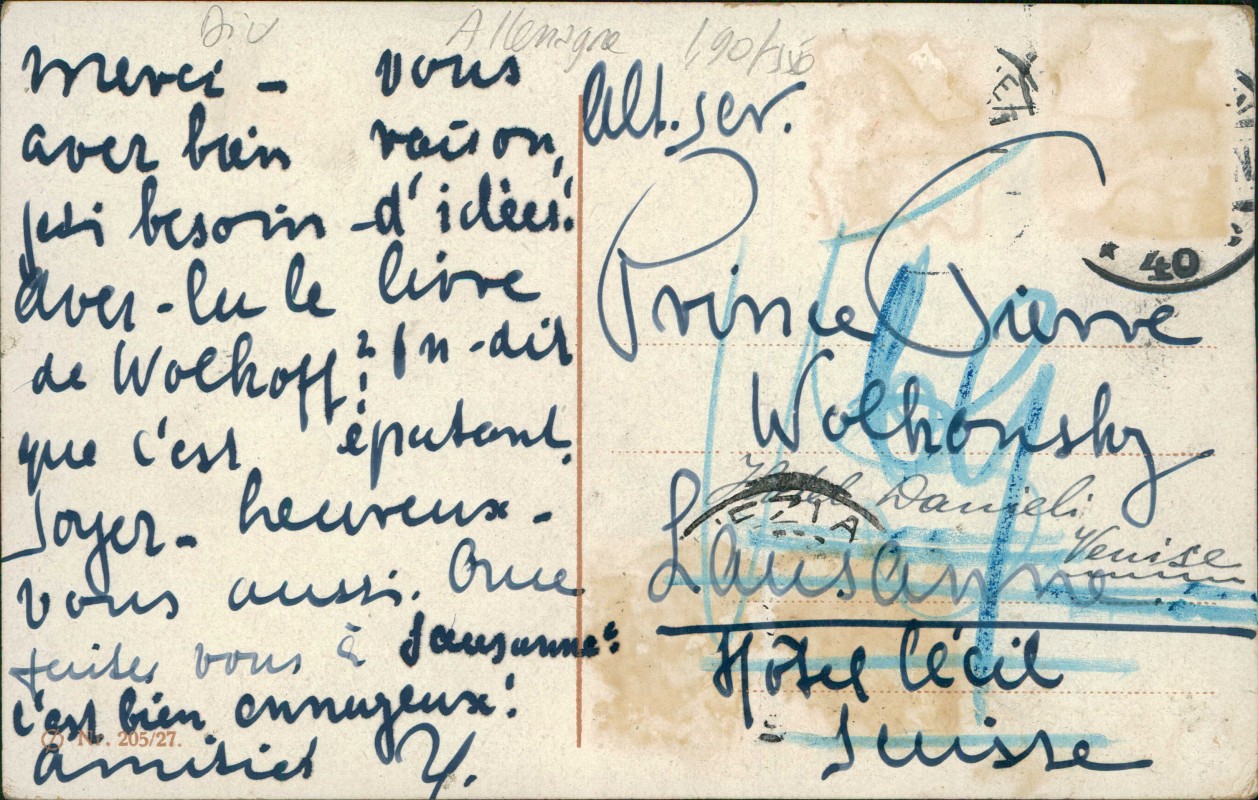 Div
Allemagne
merci - vous
avez bien raison,
j'ai besoin - d'idées!
Avez-lu le livre
de Wolkoff? On - dit
que c'est épatant.
Soyez - heureux -
vous aussi. Que
faites vous à Lausanne?
c'est bien ennuyeux!
amitiés Y.
Nr. 205/27.
Prince Pierre
Wolkonsky
Lausanne
Hôtel Cécil
Suisse
Hôtel Danieli
Venise
* 40
EZIA